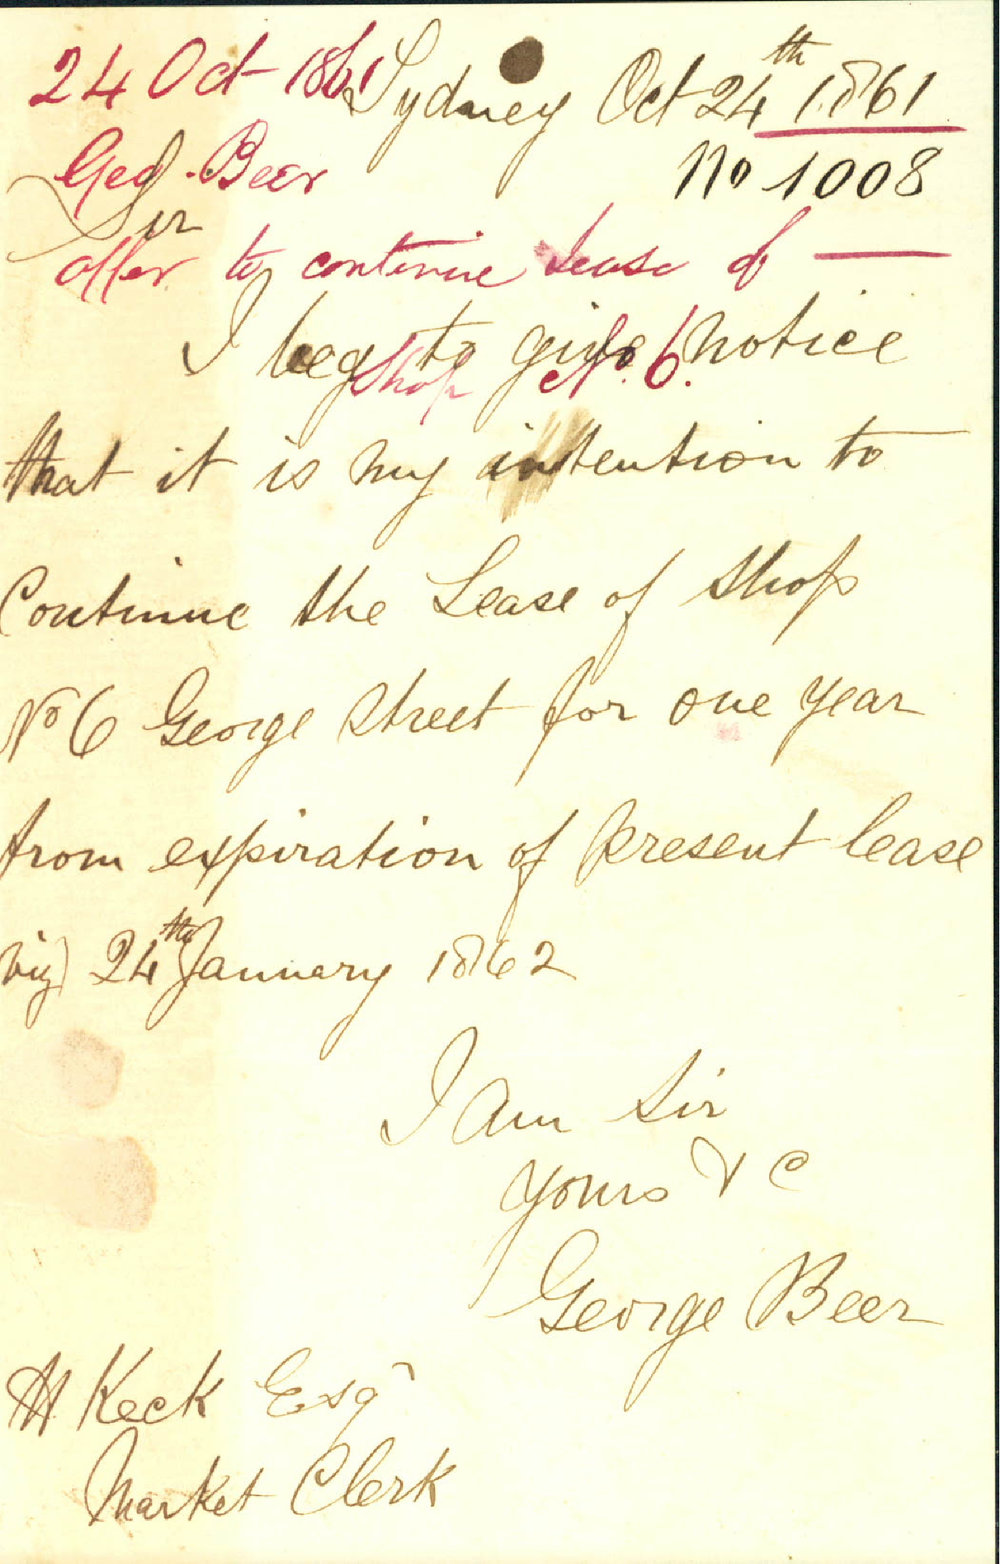 24 Oct 1861
Geo. Beer
offer to continue lease of —
Shop No. 6.
Sydney Oct 24th 1861
No 1008
Sir
I beg to give notice
that it is my intention to
Continue the Lease of Shop
No 6 George Street for one year
from expiration of present lease
viz) 24th January 1862
I am Sir
Yours & C
George Beer
H Keck Esqr
Market Clerk